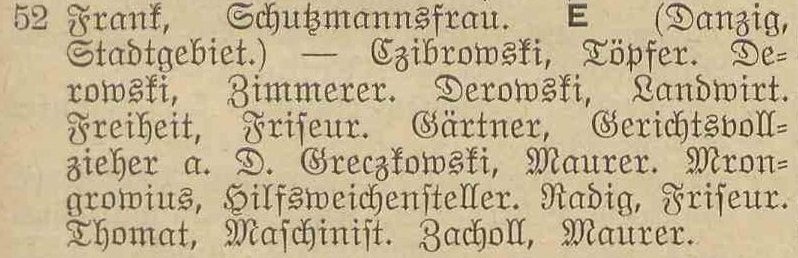 52 Frank, Schutzmannsfrau. E (Danzig,
Stadtgebiet.) — Czibrowski, Töpfer. De-
rowski, Zimmerer. Derowski, Landwirt.
Freiheit, Friseur. Gärtner, Gerichtsvoll-
zieher a. D. Greczkowski, Maurer. Mron-
growius, Hilfsweichensteller. Radig, Friseur.
Thomat, Maschinist. Zacholl, Maurer.